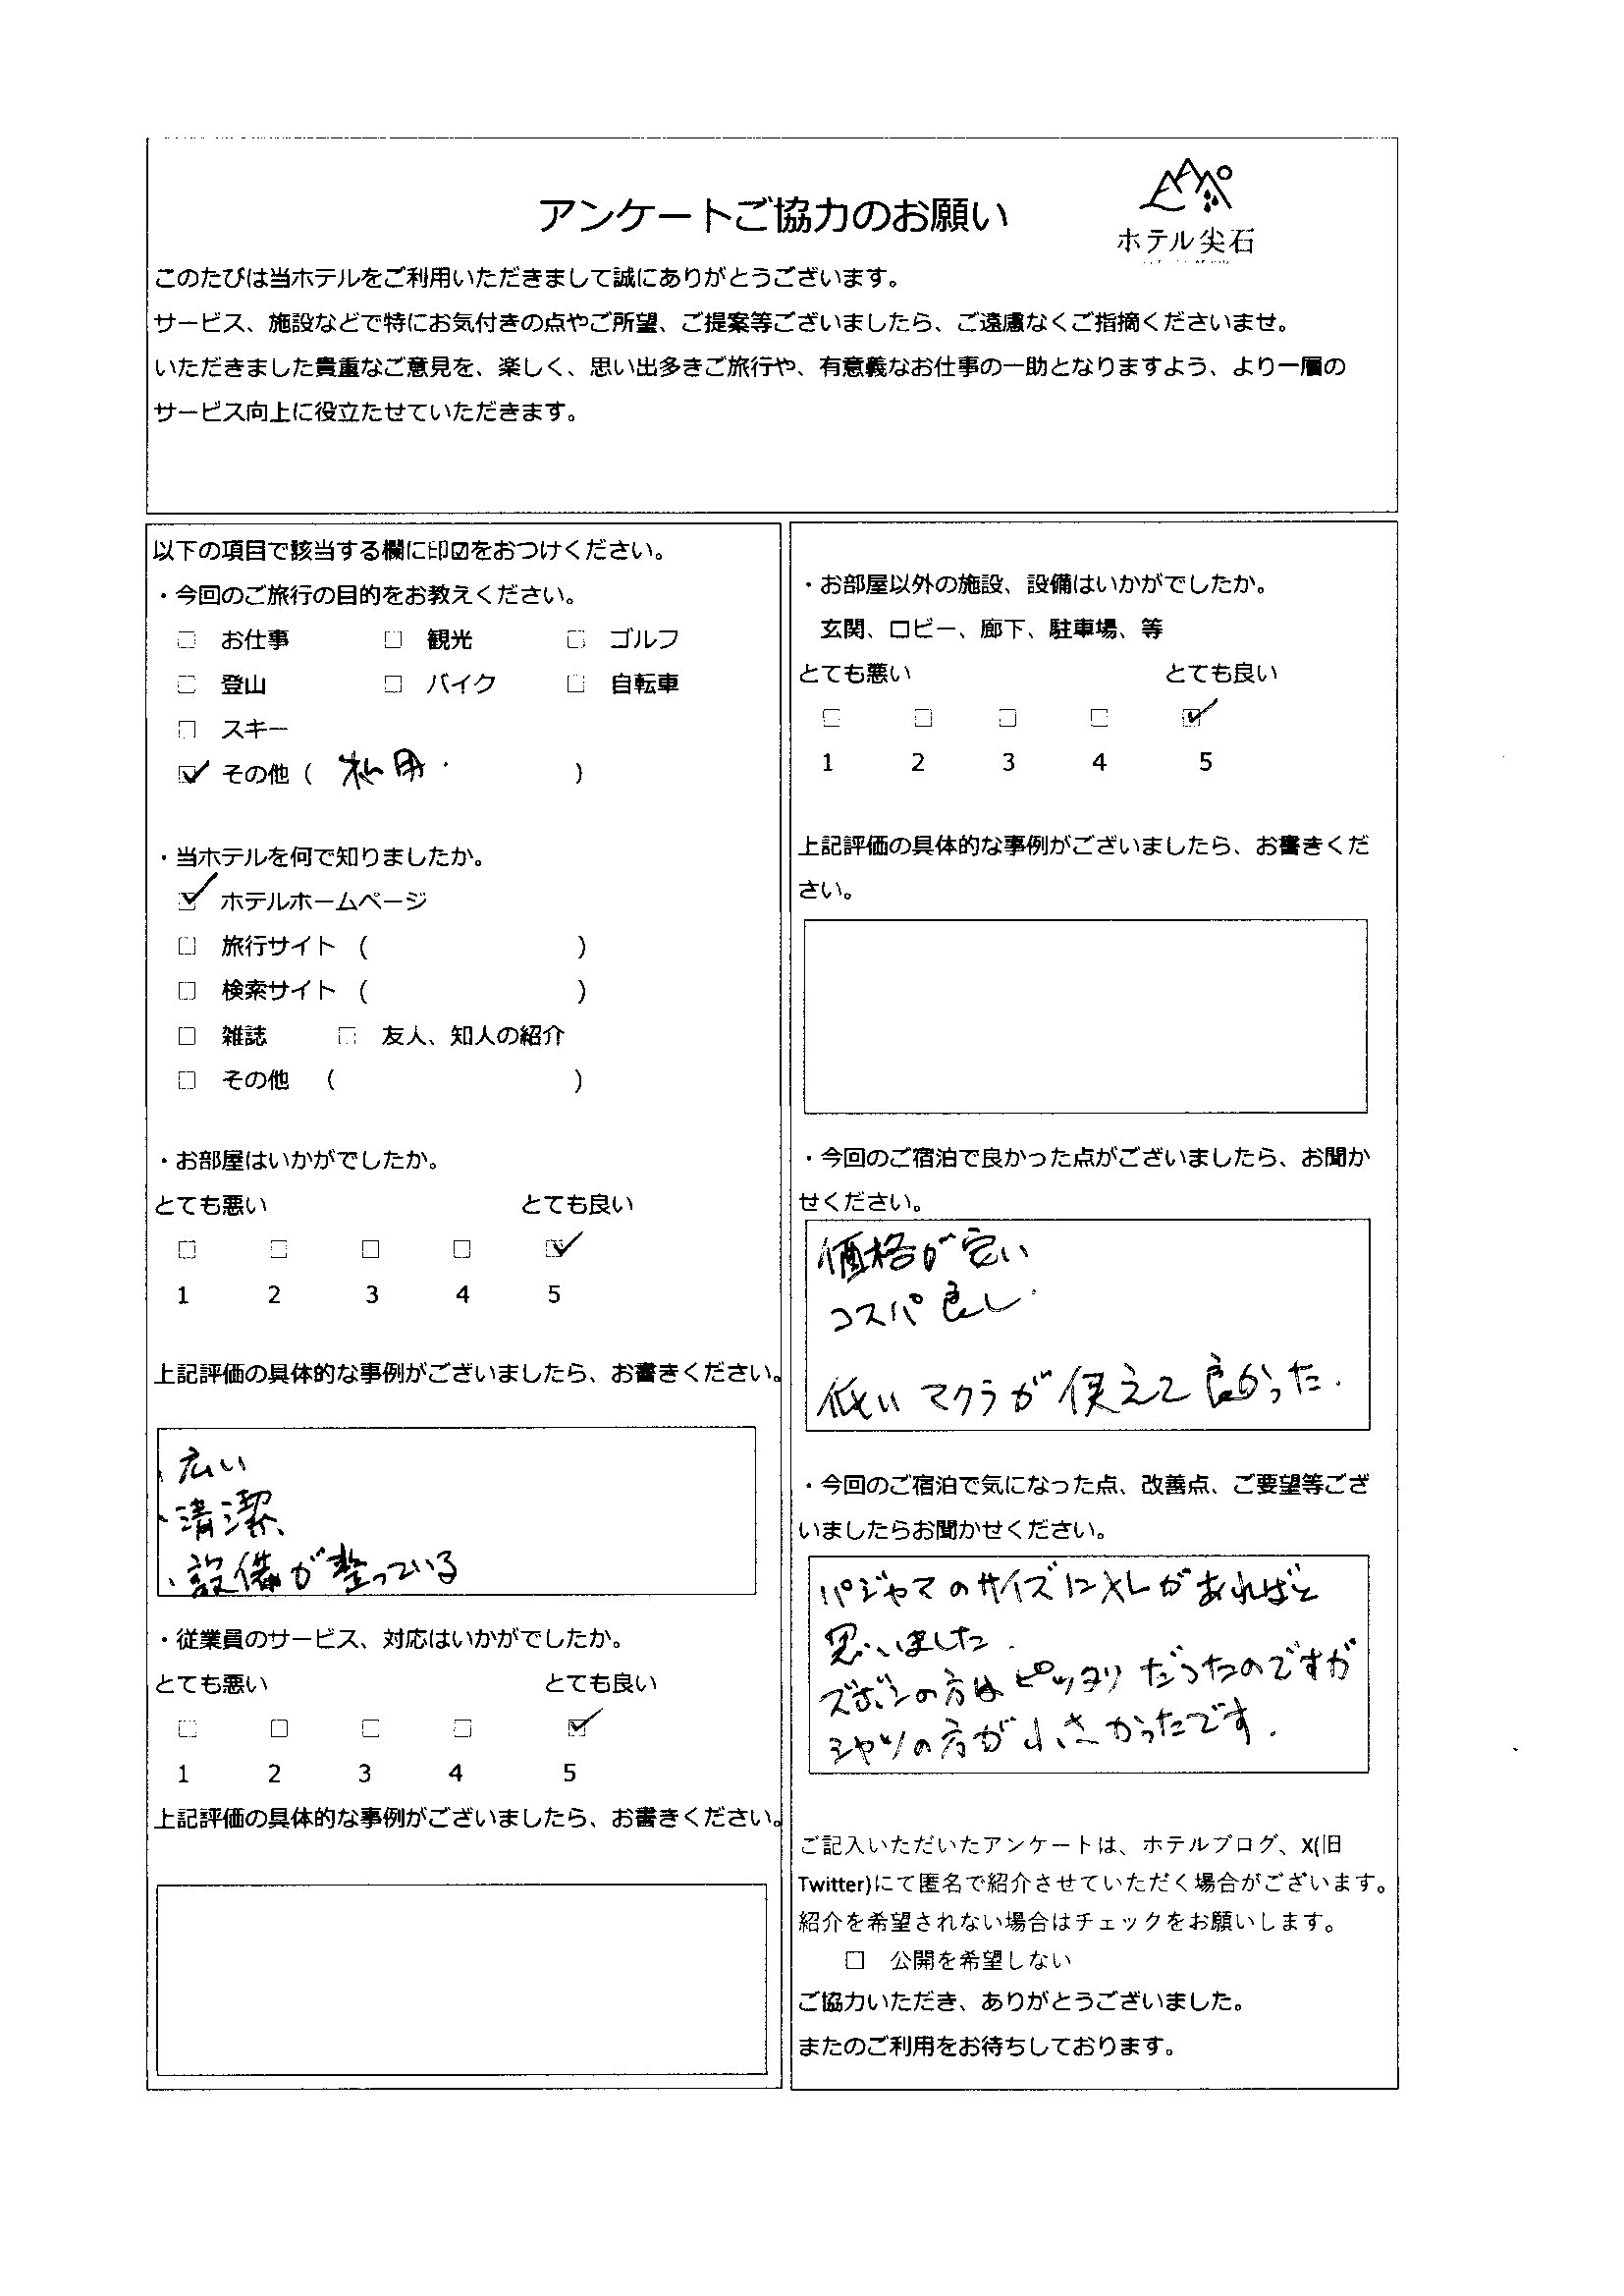 アンケートご協力のお願い
ホテル尖石
このたびは当ホテルをご利用いただきまして誠にありがとうございます。
サービス、施設などで特にお気付きの点やご所望、ご提案等ございましたら、ご遠慮なくご指摘くださいませ。
いただきました貴重なご意見を、楽しく、思い出多きご旅行や、有意義なお仕事の一助となりますよう、より一層の
サービス向上に役立たせていただきます。
以下の項目で該当する欄に印☑をおつけください。
・今回のご旅行の目的をお教えください。
☐ お仕事 ☐ 観光 ☐ ゴルフ
☐ 登山 ☐ バイク ☐ 自転車
☐ スキー
☑ その他 ( 私用 )
・当ホテルを何で知りましたか。
☑ ホテルホームページ
☐ 旅行サイト ( )
☐ 検索サイト ( )
☐ 雑誌 ☐ 友人、知人の紹介
☐ その他 ( )
・お部屋はいかがでしたか。
とても悪い とても良い
☐ ☐ ☐ ☐ ☑
1 2 3 4 5
上記評価の具体的な事例がございましたら、お書きください。
・広い
・清潔
・設備が整っている
・従業員のサービス、対応はいかがでしたか。
とても悪い とても良い
☐ ☐ ☐ ☐ ☑
1 2 3 4 5
上記評価の具体的な事例がございましたら、お書きください。
・お部屋以外の施設、設備はいかがでしたか。
玄関、ロビー、廊下、駐車場、等
とても悪い とても良い
☐ ☐ ☐ ☐ ☑
1 2 3 4 5
上記評価の具体的な事例がございましたら、お書きくだ
さい。
・今回のご宿泊で良かった点がございましたら、お聞か
せください。
価格が安い
コスパ良し.
低いマクラが使えて良かった.
・今回のご宿泊で気になった点、改善点、ご要望等ござ
いましたらお聞かせください。
パジャマのサイズにXLがあればと
思いました.
ズボンの方はピッタリだったのですが
シャツの方が小さかったです.
ご記入いただいたアンケートは、ホテルブログ、X(旧
Twitter)にて匿名で紹介させていただく場合がございます。
紹介を希望されない場合はチェックをお願いします。
☐ 公開を希望しない
ご協力いただき、ありがとうございました。
またのご利用をお待ちしております。